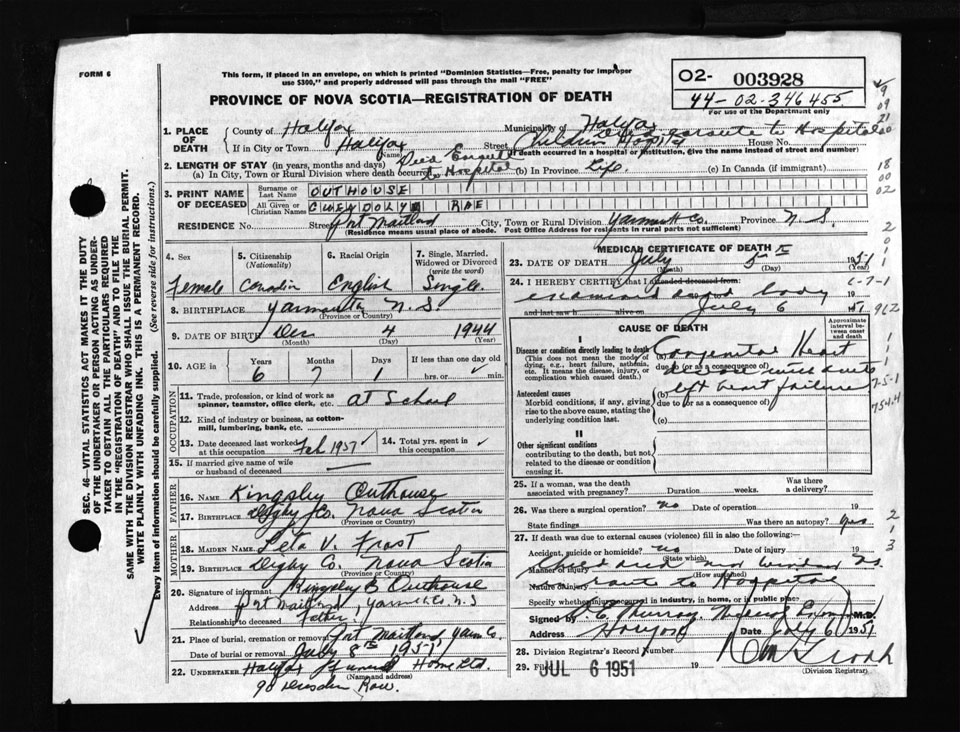 FORM 6
This form, if placed in an envelope, on which is printed "Dominion Statistics—Free, penalty for improper
use $300," and properly addressed will pass through the mail "FREE"
PROVINCE OF NOVA SCOTIA—REGISTRATION OF DEATH
O2- 003928
44-02-346455
For use of the Department only
1. PLACE OF DEATH
County of Halifax
Municipality of Halifax
If in City or Town Halifax Street Children's Hospital House No.
enroute to Hospital
(Name) (If death occurred in a hospital or institution, give the name instead of street and number)
2. LENGTH OF STAY (in years, months and days) Died Enroute to Hospital
(a) In City, Town or Rural Division where death occurred (b) In Province Life (c) In Canada (if immigrant)
3. PRINT NAME OF DECEASED
Surname or Last Name OUTHOUSE
All Given or Christian Names GWENDOLYN RAE
RESIDENCE No. Street Port Maitland City, Town or Rural Division Yarmouth Co. Province N.S.
(Residence means usual place of abode. Post Office Address for residents in rural parts not sufficient)
4. Sex Female
5. Citizenship (Nationality) Canadian
6. Racial Origin English
7. Single, Married, Widowed or Divorced (write the word) Single
8. BIRTHPLACE Yarmouth N.S.
(Province or Country)
9. DATE OF BIRTH Dec 4 1944
(Month) (Day) (Year)
10. AGE in Years Months Days If less than one day old
6 7 1 hrs. or min.
OCCUPATION
11. Trade, profession, or kind of work as spinner, teamster, office clerk, etc. At School
12. Kind of industry or business, as cotton-mill, lumbering, bank, etc.
13. Date deceased last worked at this occupation Feb 1951
14. Total yrs. spent in this occupation
15. If married give name of wife or husband of deceased
FATHER
16. NAME Kingsley Outhouse
17. BIRTHPLACE Digby Co. Nova Scotia
(Province or Country)
MOTHER
18. MAIDEN NAME Leta V. Frost
19. BIRTHPLACE Digby Co. Nova Scotia
(Province or Country)
20. Signature of informant Kingsley B Outhouse
Address Port Maitland, Yarmouth Co. N.S
Relationship to deceased Father
21. Place of burial, cremation or removal Port Maitland, Yarm Co.
Date of burial or removal July 8th 1951
22. UNDERTAKER Halifax Funeral Home Ltd.
(Name and address)
90 Dresden Row.
MEDICAL CERTIFICATE OF DEATH
23. DATE OF DEATH July 5th 1951
(Month) (Day) (Year)
24. I HEREBY CERTIFY that I attended deceased from:
examined body
and last saw h alive on July 6 51
CAUSE OF DEATH
Approximate interval between onset and death
I
Disease or condition directly leading to death
(This does not mean the mode of dying, e.g., heart failure, asthenia, etc. It means the disease, injury, or complication which caused death.)
(a) Congenital Heart
due to (or as a consequence of)
Antecedent causes
Morbid conditions, if any, giving rise to the above cause, stating the underlying condition last
(b) left heart failure
due to (or as a consequence of)
(c)
II
Other significant conditions
contributing to the death, but not related to the disease or condition causing it.
25. If a woman, was the death associated with pregnancy? Duration weeks. Was there a delivery?
26. Was there a surgical operation? no Date of operation 19
State findings Was there an autopsy?
27. If death was due to external causes (violence) fill in also the following:—
Accident, suicide or homicide? no Date of injury 19
(State which)
Manner of injury near Windsor N.S.
(How sustained)
Nature of injury route to Hospital
Specify whether injury occurred in industry, in home, or in public place
Signed by Murray Medical M.D.
Address Date July 6 1951
28. Division Registrar's Record Number
29. Filed JUL 6 1951 19
(Division Registrar)
SEC. 46—VITAL STATISTICS ACT MAKES IT THE DUTY
OF THE UNDERTAKER OR PERSON ACTING AS UNDER-
TAKER TO OBTAIN ALL THE PARTICULARS REQUIRED
IN THE "REGISTRATION OF DEATH" AND TO FILE THE
SAME WITH THE DIVISION REGISTRAR WHO SHALL ISSUE THE BURIAL PERMIT.
WRITE PLAINLY WITH UNFADING INK. THIS IS A PERMANENT RECORD.
Every item of information should be carefully supplied. (See reverse side for instructions.)